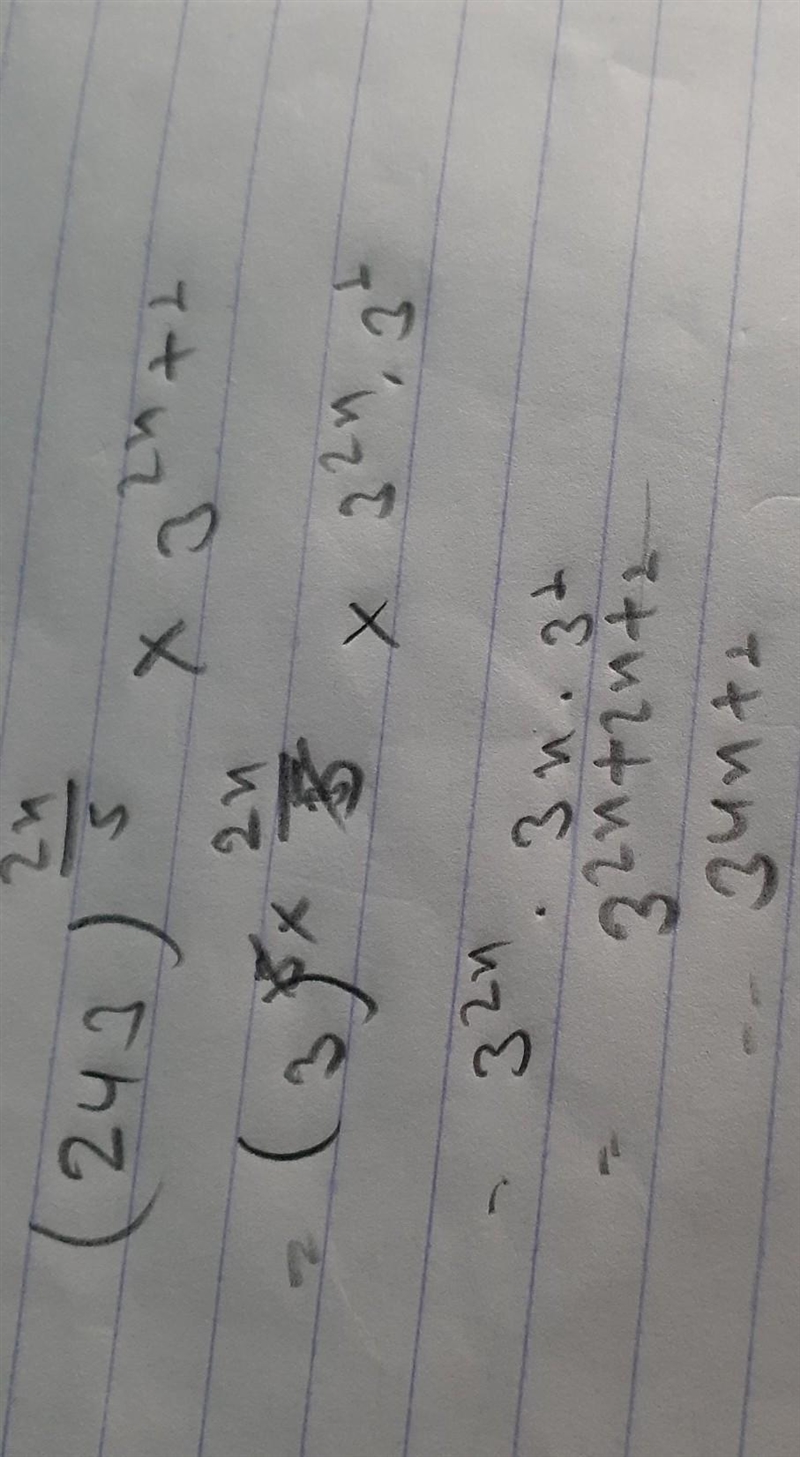 (243)^(2n/5) × 3^(2n+1)
= (3^5)^(× 2n/5) × 3^(2n) . 3^1
- 3^(2n) . 3n . 3^1
= 3^(2n+2n+1)
-- 3^(4n+1)